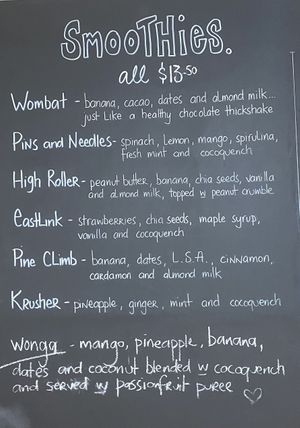 SMOOTHIES.
all $13.50
Wombat - banana, cacao, dates and almond milk...
just Like a healthy chocolate thickshake
Pins and Needles - spinach, Lemon, mango, spirulina,
fresh mint and cocoquench
High Roller - peanut butter, banana, chia seeds, vanilla
and almond milk, topped w peanut crumble
EastLink - strawberries, chia seeds, maple syrup,
vanilla and cocoquench
Pine Climb - banana, dates, L.S.A., cinnamon,
cardamon and almond milk
Krusher - pineapple, ginger, mint and cocoquench
wongg - mango, pineapple, banana,
dates and coconut blended w cocoquench
and served w passionfruit puree